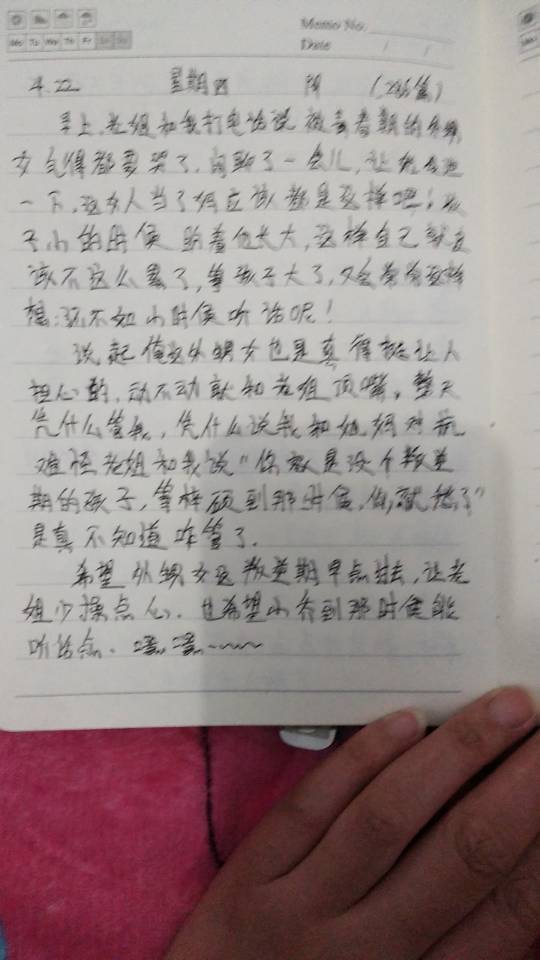 Memo No.
Date / /
Mo Tu We Th Fr Sa Su
4.22 星期四 阴 (286篇)
早上,老姐和我打电话说被青春期的外甥
女气得都要哭了,闲聊了一会儿,让她发泄
一下,这女人当了妈应该都是这样吧!孩
子小的时候盼着他长大,这样自己就应
该不这么累了,等孩子大了,又会常常这样
想:还不如小时候听话呢!
说起俺这外甥女也是真得挺让人
担心的,动不动就和老姐顶嘴,整天
凭什么管我,凭什么说我和她妈对抗
难怪老姐和我说"你家是没个叛逆
期的孩子,等 到那时候,你就愁了"
是真不知道咋管了.
希望外甥女这叛逆期早点过去,让老
姐少操点心.也希望小 到那时候能
听话点.嘿嘿~~~